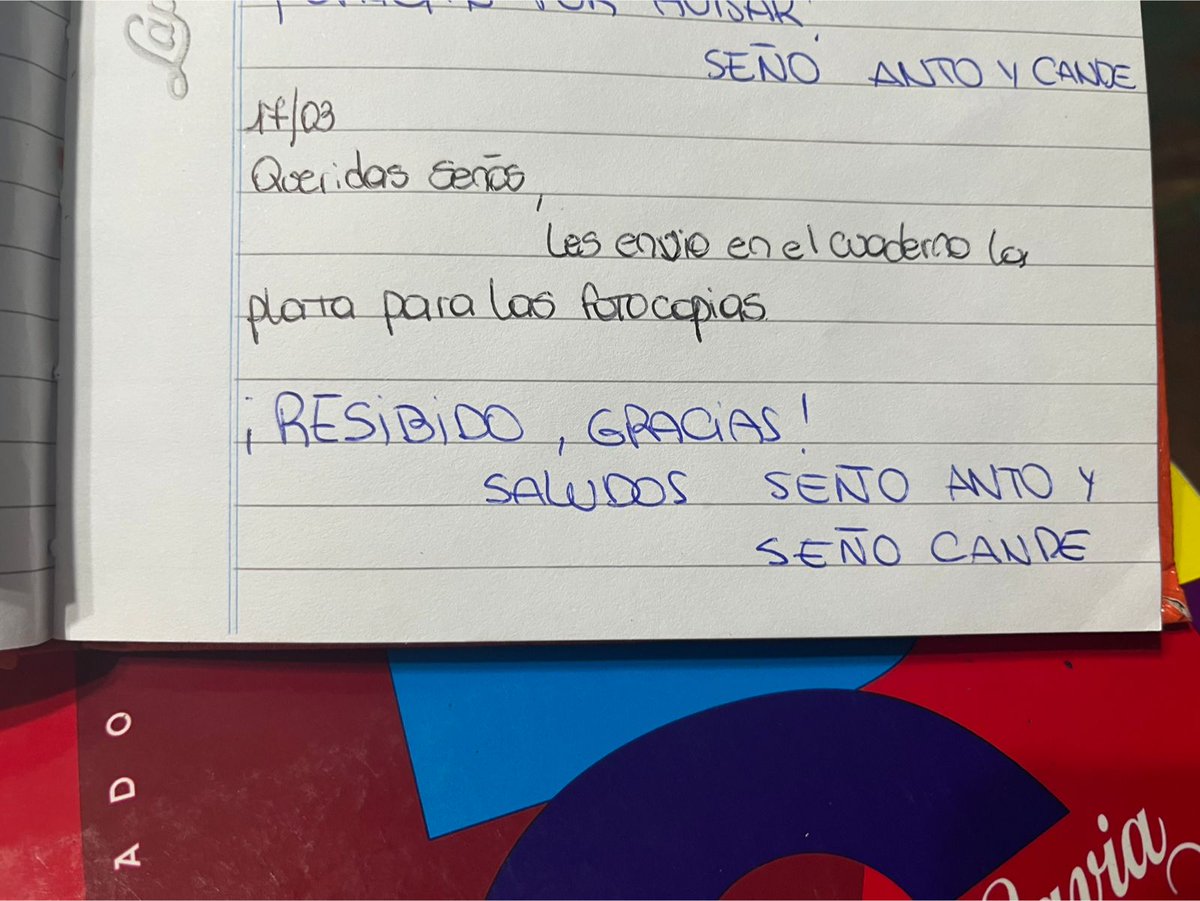 POR AVISAR
SEÑO ANTO Y CANDE
17/03
Queridas señós,
Les envio en el cuaderno la
plata para las fotocopias.
¡RESIBIDO, GRACIAS!
SALUDOS SEÑO ANTO Y
SEÑO CANDE
ADO